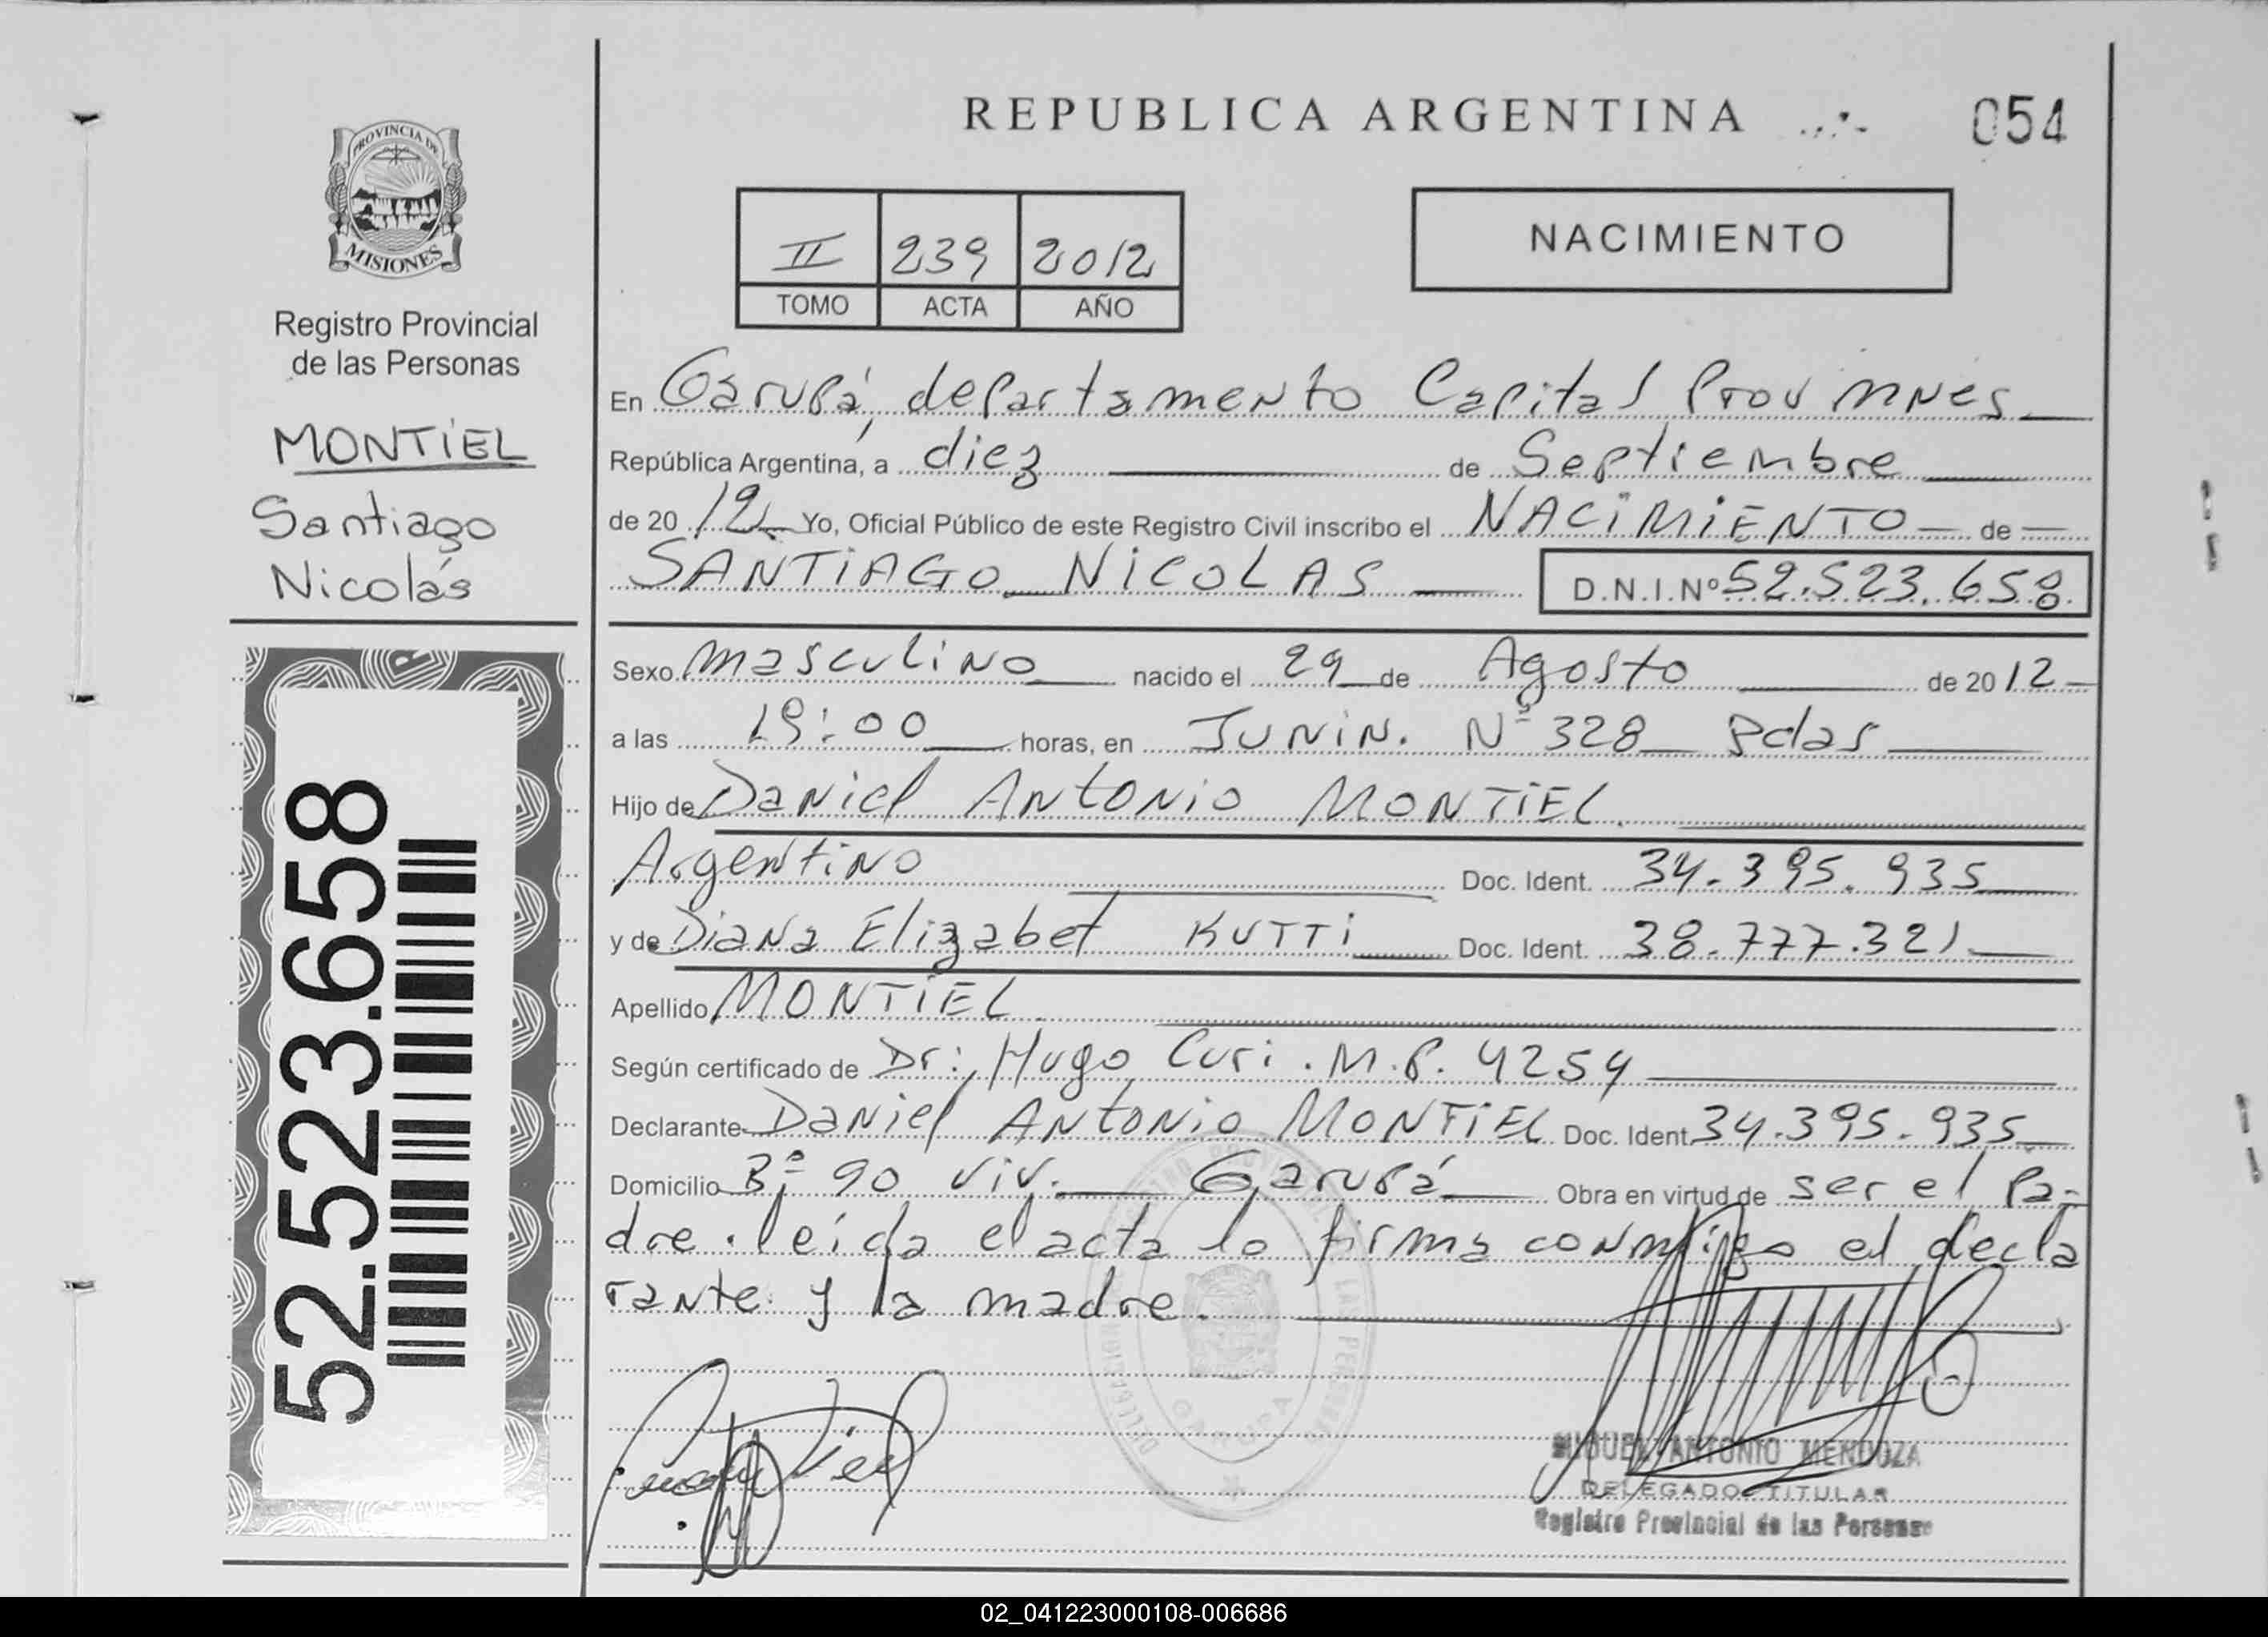 REPUBLICA ARGENTINA
054
PROVINCIA DE
MISIONES
Registro Provincial
de las Personas
MONTIEL
Santiago
Nicolás
52.523.658
II 239 2012
TOMO ACTA AÑO
NACIMIENTO
En Garupá, departamento Capital Prov
República Argentina, a diez de Septiembre
de 20 12 Yo, Oficial Público de este Registro Civil inscribo el NACIMIENTO de
SANTIAGO NICOLAS D.N.I.Nº 52.523.658
Sexo masculino nacido el 29 de Agosto de 20 12
a las 19:00 horas, en JUNIN. Nº 328 Pdas
Hijo de Daniel ANtONio MONTIEL
Argentino Doc. Ident. 34.395.935
y de Diana Elizabet KUTTI Doc. Ident. 38.777.321
Apellido MONTIEL
Según certificado de Dr: Hugo Curi. M.P. 4254
Declarante Daniel ANtONio MONTIEL Doc. Ident. 34.395.935
Domicilio Bº 90 viv. Garupá Obra en virtud de ser el Pa-
dre. leída el acta lo firma conmigo el decla
rante y la madre.
MIGUEL ANTONIO MENDOZA
DELEGADO TITULAR
Registro Provincial de las Personas
GARUPA
02_041223000108-006686